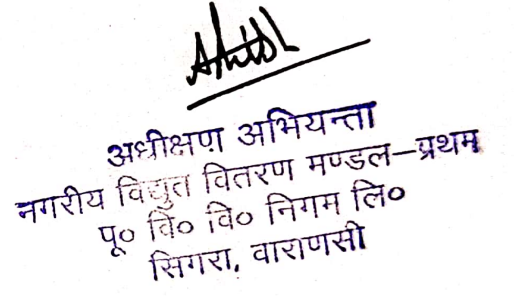 अधीक्षण अभियन्ता
नगरीय विद्युत वितरण मण्डल–प्रथम
पू० वि० वि० निगम लि०
सिगरा, वाराणसी